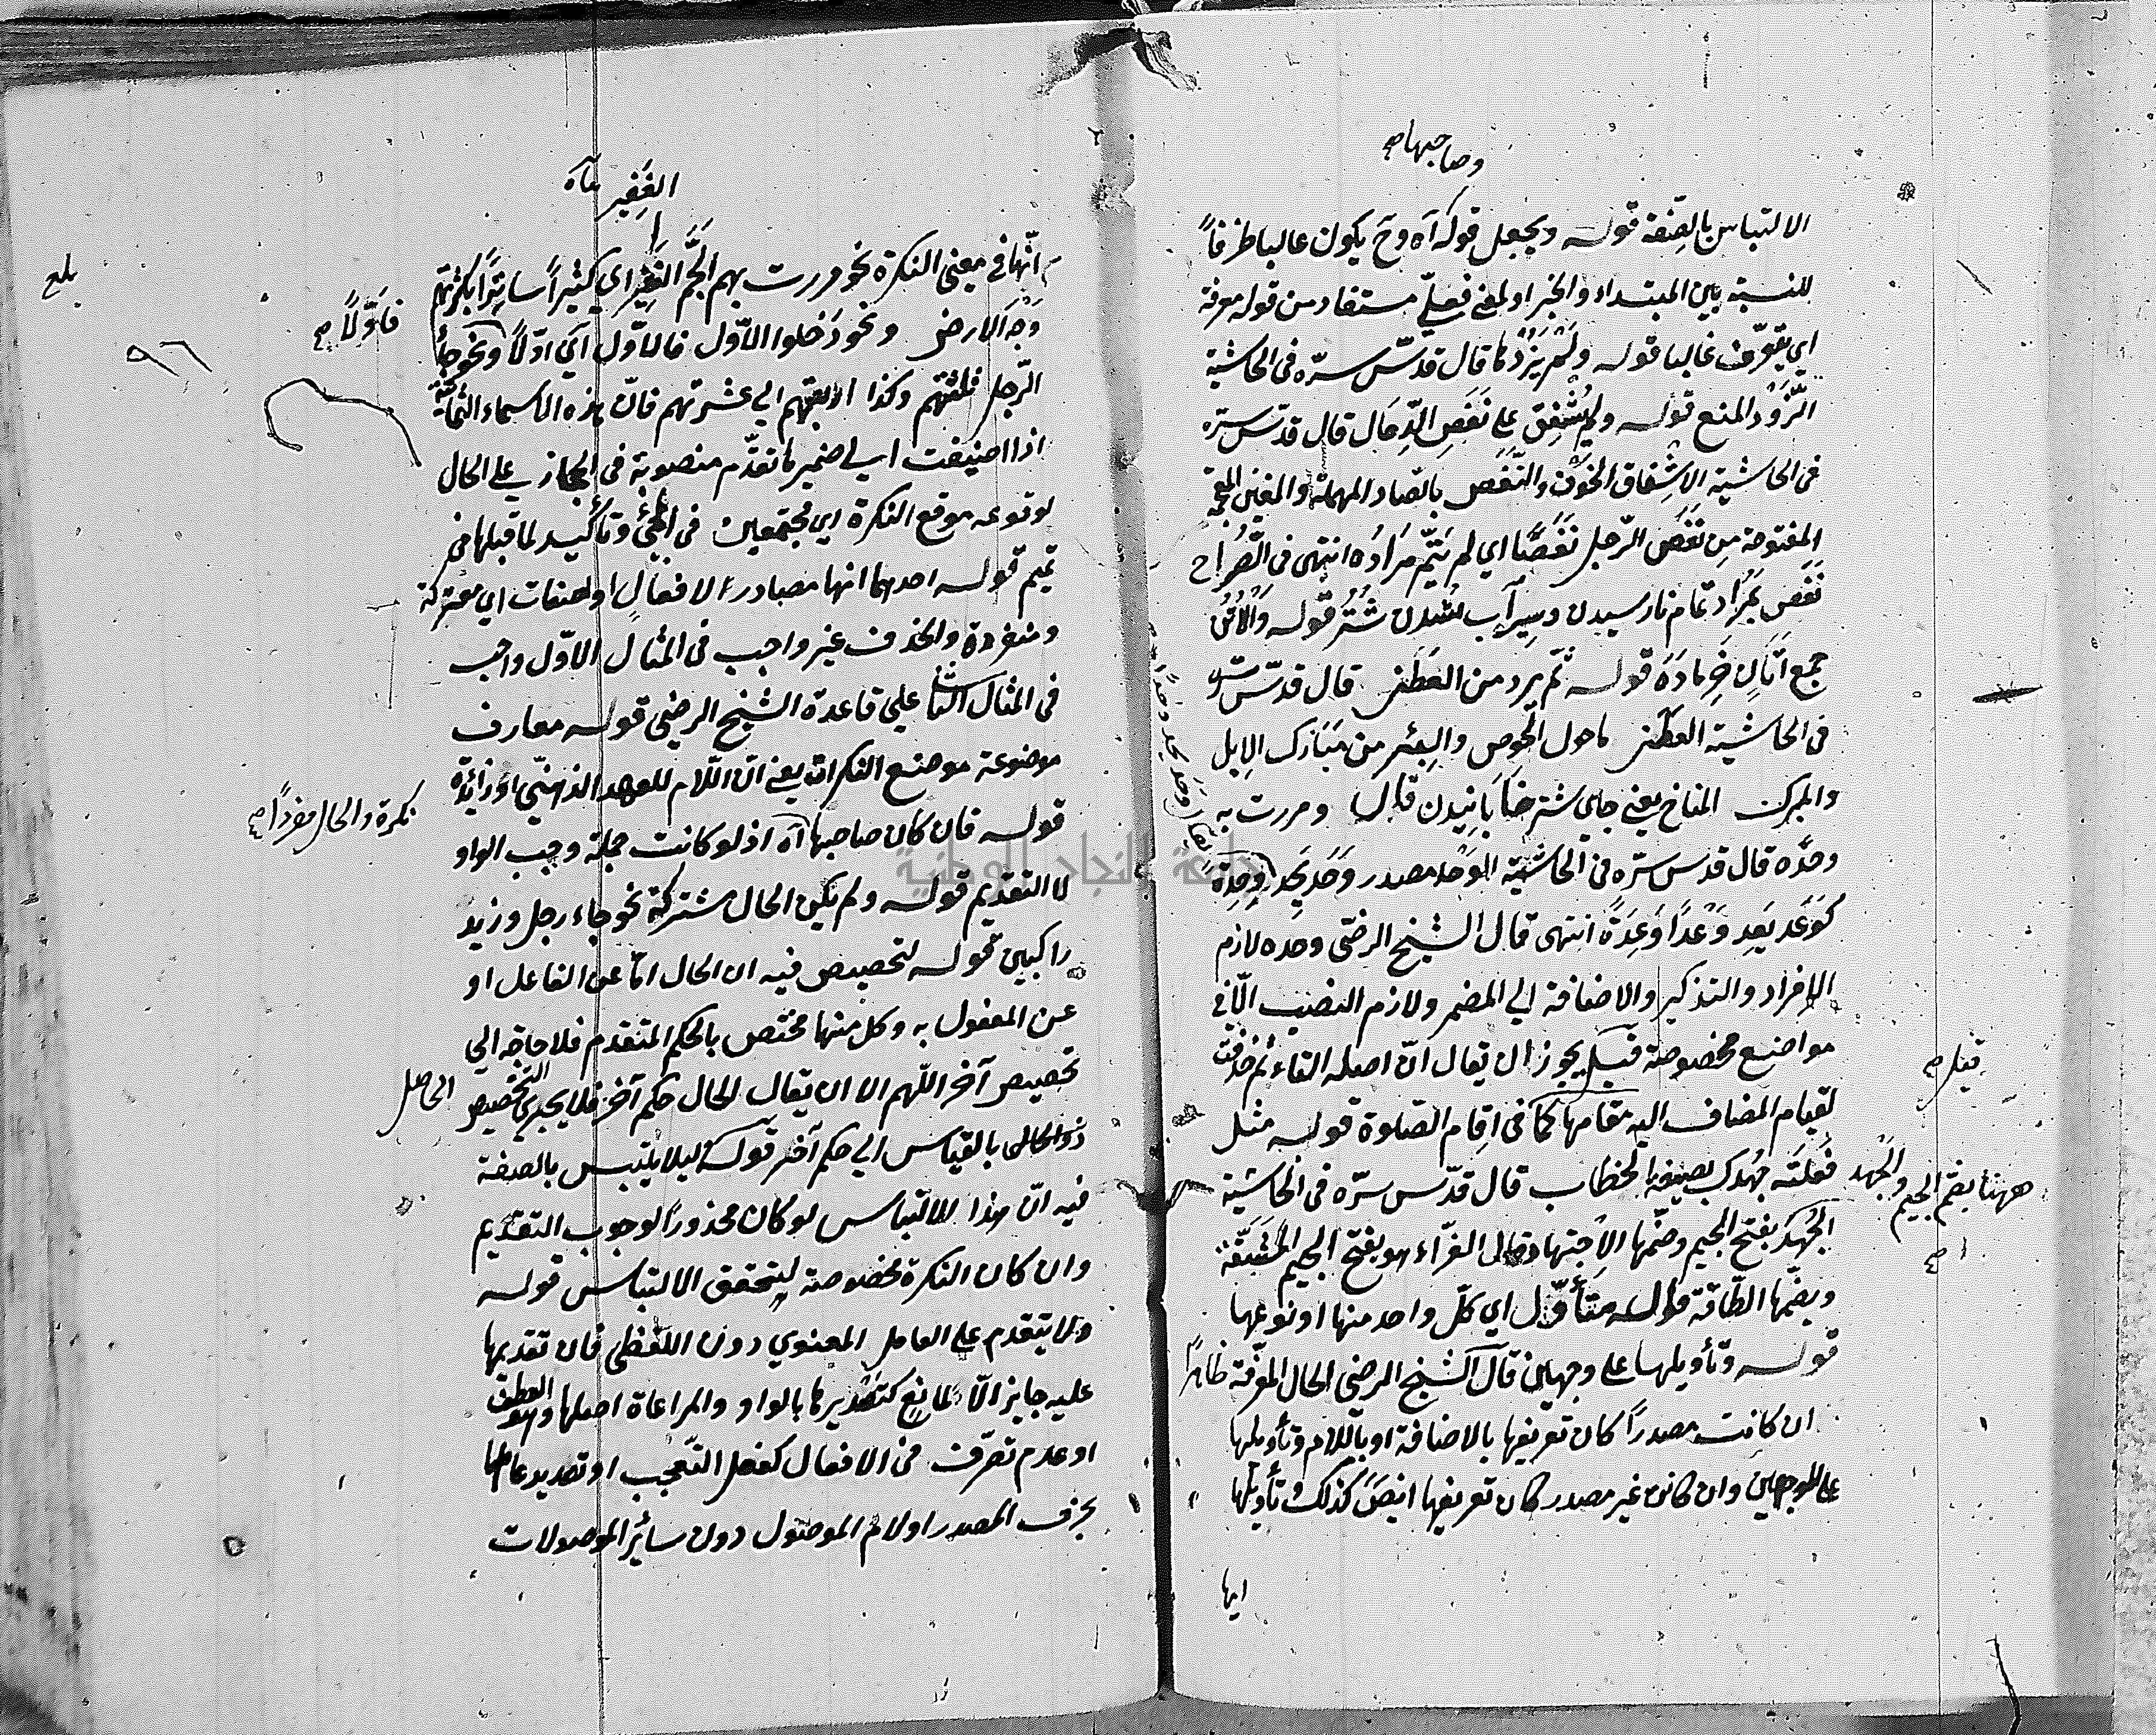 وصاحبها صح
الالتباس بالصّفة قوله ويجعل قوله آه وح يكون عالبا ظرفاً
للنسبة بين المبتداء والخبر اولمعنى فعليّ مستفاد من قوله معرفة
اي تقوّف غالبا قوله ولم يَزُدْها قال قدّس سرّه في الحاشية
الزّوْد المنع قوله ولم يُشْفِق على نَغَصِ الدِّخال قال قدّس سرّه
في الحاشية الاشفاق الخوف والنَّغَص بالصّاد المهملة والغين المعجمة
المفتوحة مِن نَغِصَ الرّجل نَغَصًا اي لم يَتِمّ مرادُه انتهى في الصُّرَاح
نَغَص بمُراد تمام نارسيدن وسيرآب نشدن شُتُر قوله والاُتُن
جمع اَتَان خَرِ مادَه قوله ثمّ يرد من العَطَن قال قدّس سرّه
في الحاشية العَطَن ما حول الحوض والبِئر من مَبَارك الابل
والمبرك المناخ يعني جاي شتر خنابانيدن قال ومررت به
وحدَه قال قدس سرّه في الحاشية الوَحْد مصدر وَحَدَ يَحِد وحِدَة
يقال وَحَد يحد وحْدًا صح
كوَعَد يَعِد وَعْدًا وَعِدَةً انتهى قال الشيخ الرضيّ وحده لازم
الافراد والتذكير والاضافة الى المضمر ولازم النصب الّا في
مواضع مخصوصة قيل يجوز ان يقال انّ اصله التاء ثم حذفت
قيل صح
لقيام المضاف اليه مقامها كما في اقِام الصّلوة قوله مثل
فعلتَه جُهدك بصيغة الخطاب قال قدّس سرّه في الحاشية
ههنا بضم الجيم والجُهد
الجهد بفتح الجيم وضمّها الاجتهاد وقال الفرّاء هو بفتح الجيم المَشقّة
وبضمّها الطّاقة قوله متأوّل اي كلّ واحد منها او نوعها
قوله وتأويلها على وجهين قال الشيخ الرضي الحال المعرّفة ظاهراً
ان كانت مصدراً كان تعريفها بالاضافة او باللام وتأويلها
على الوجهين وان كانت غير مصدر كان تعريفها ايضَ كذلك وتأويلها
ايها
الغَفِير
انّها في معنى النكرة نحو مررت بهم الجَمَّ الغفير اي كثيراً ساتراً بكثرتهم
بلغ
وَجه الارض ونحو دخلوا الاوّل فالاوّل اي اوّلاً ونحو جاء
فاوّلاً صح
الرّجل ثلثتهم وكذا اربعتهم الى عشرتهم فانّ هذه الاسماء الثمانية
اذا اضيفت الى ضمير ما تقدّم منصوبة في الحجاز على الحال
لوقوعه موقع النكرة اي مجتمعين في المجئ وتأكيد لما قبلها في
تميم قوله احدهما انها مصادر لافعال او لصفات اي معتركة
ومنفردة والحذف غير واجب في المثال الاوّل واجب
في المثال الثاني على قاعدة الشيخ الرضي قوله معارف
موضوعة موضع النكرات يعني انّ اللّام للعهد الذهنيّ او زائدة
قوله فان كان صاحبها آه اذ لو كانت جملة وجب الواو
نكرة والحال مفرداً صح
لا التقديم قوله ولم يكن الحال مشتركة نحو جاء رجل وزيد
راكبين قوله لتخصيص فيه ان الحال امّا عن الفاعل او
عن المفعول به وكل منها مختص بالحكم المتقدم فلا حاجة الى
تخصيص آخر اللّهم الا ان يقال الحال حكم آخر فلا يجدي التخصيص
الحاصل
ذوالحال بالقياس الى حكم آخر قوله ليلا يلتبس بالصفة
فيه انّ هذا الالتباس لو كان محذوراً لوجوب التقديم
وان كان النكرة مخصوصة ليتحقق الالتباس قوله
ولا يتقدم على العامل المعنوي دون اللفظي فان تقديمها
عليه جايز الّا لمانع كتصْديرها بالواو والمراعاة اصلها وهو العطف
او عدم تصرّف في الافعال كفعل التّعجب او تصدير عاملها
بحرف المصدر او لام الموصول دون سائر الموصولات